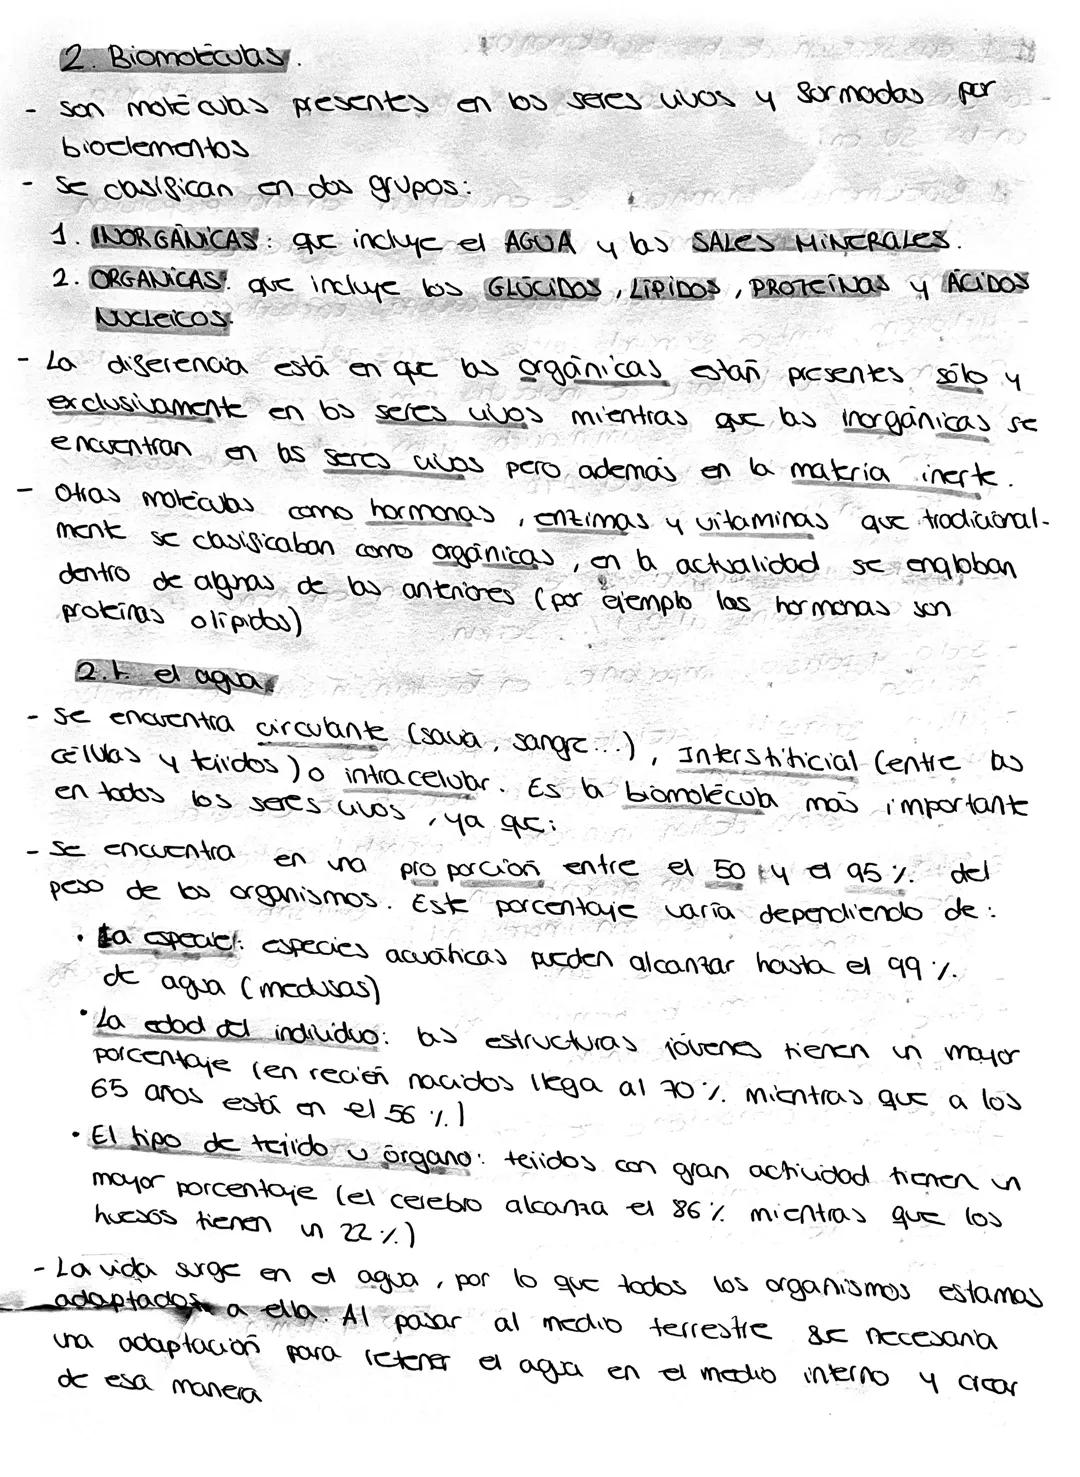 2. Biomoléculas.
- son moléculas presentes en los seres vivos y formadas por
bioelementos
- se clasifican en dos grupos:
1. INORGÁNICAS: que incluye el AGUA y las SALES MINERALES.
2. ORGANICAS: que incluye los GLÚCIDOS, LÍPIDOS, PROTEÍNAS y ÁCIDOS
NUCLEICOS.
- La diferencia está en que las orgánicas están presentes sólo y
exclusivamente en los seres vivos mientras que las inorgánicas se
encuentran en los seres vivos pero además en la materia inerte.
- Otras moléculas como hormonas, enzimas y vitaminas que tradicional-
mente se clasificaban como orgánicas, en la actualidad se engloban
dentro de algnas de las anteriores (por ejemplo las hormonas son
proteínas o lípidos)
2.1. el agua.
- se encuentra circulante (savia, sangre...), Intersticial (entre las
células y tejidos) o intracelular. Es la biomolécula más importante
en todos los seres vivos, ya que:
- se encuentra en una proporción entre el 50 y el 95% del
peso de los organismos. Este porcentaje varía dependiendo de:
· La especie: especies acuáticas pueden alcanzar hasta el 99%
de agua (medusas)
· La edad del individuo: las estructuras jóvenes tienen un mayor
porcentaje (en recién nacidos llega al 70% mientras que a los
65 años está en el 56%)
· El tipo de tejido u órgano: tejidos con gran actividad tienen un
mayor porcentaje (el cerebro alcanza el 86% mientras que los
huesos tienen un 22%)
- La vida surge en el agua, por lo que todos los organismos estamos
adaptados a ella. Al pasar al medio terrestre fue necesaria
una adaptación para retener el agua en el medio interno y crear
de esa manera